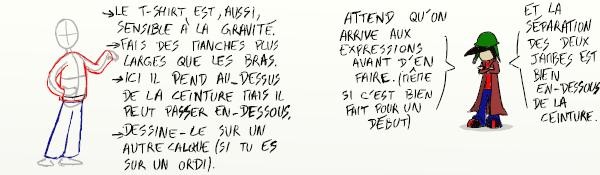 LE T-SHIRT EST, AUSSI,
SENSIBLE À LA GRAVITÉ.
FAIS DES MANCHES PLUS
LARGES QUE LES BRAS.
ICI IL PEND AU-DESSUS
DE LA CEINTURE MAIS IL
PEUT PASSER EN-DESSOUS.
DESSINE-LE SUR UN
AUTRE CALQUE (SI TU ES
SUR UN ORDI).
ATTEND QU'ON
ARRIVE AUX
EXPRESSIONS
AVANT D'EN
FAIRE. (MÊME
SI C'EST BIEN
FAIT POUR UN
DÉBUT)
ET LA
SÉPARATION
DES DEUX
JAMBES EST
BIEN
EN-DESSOUS
DE LA
CEINTURE.